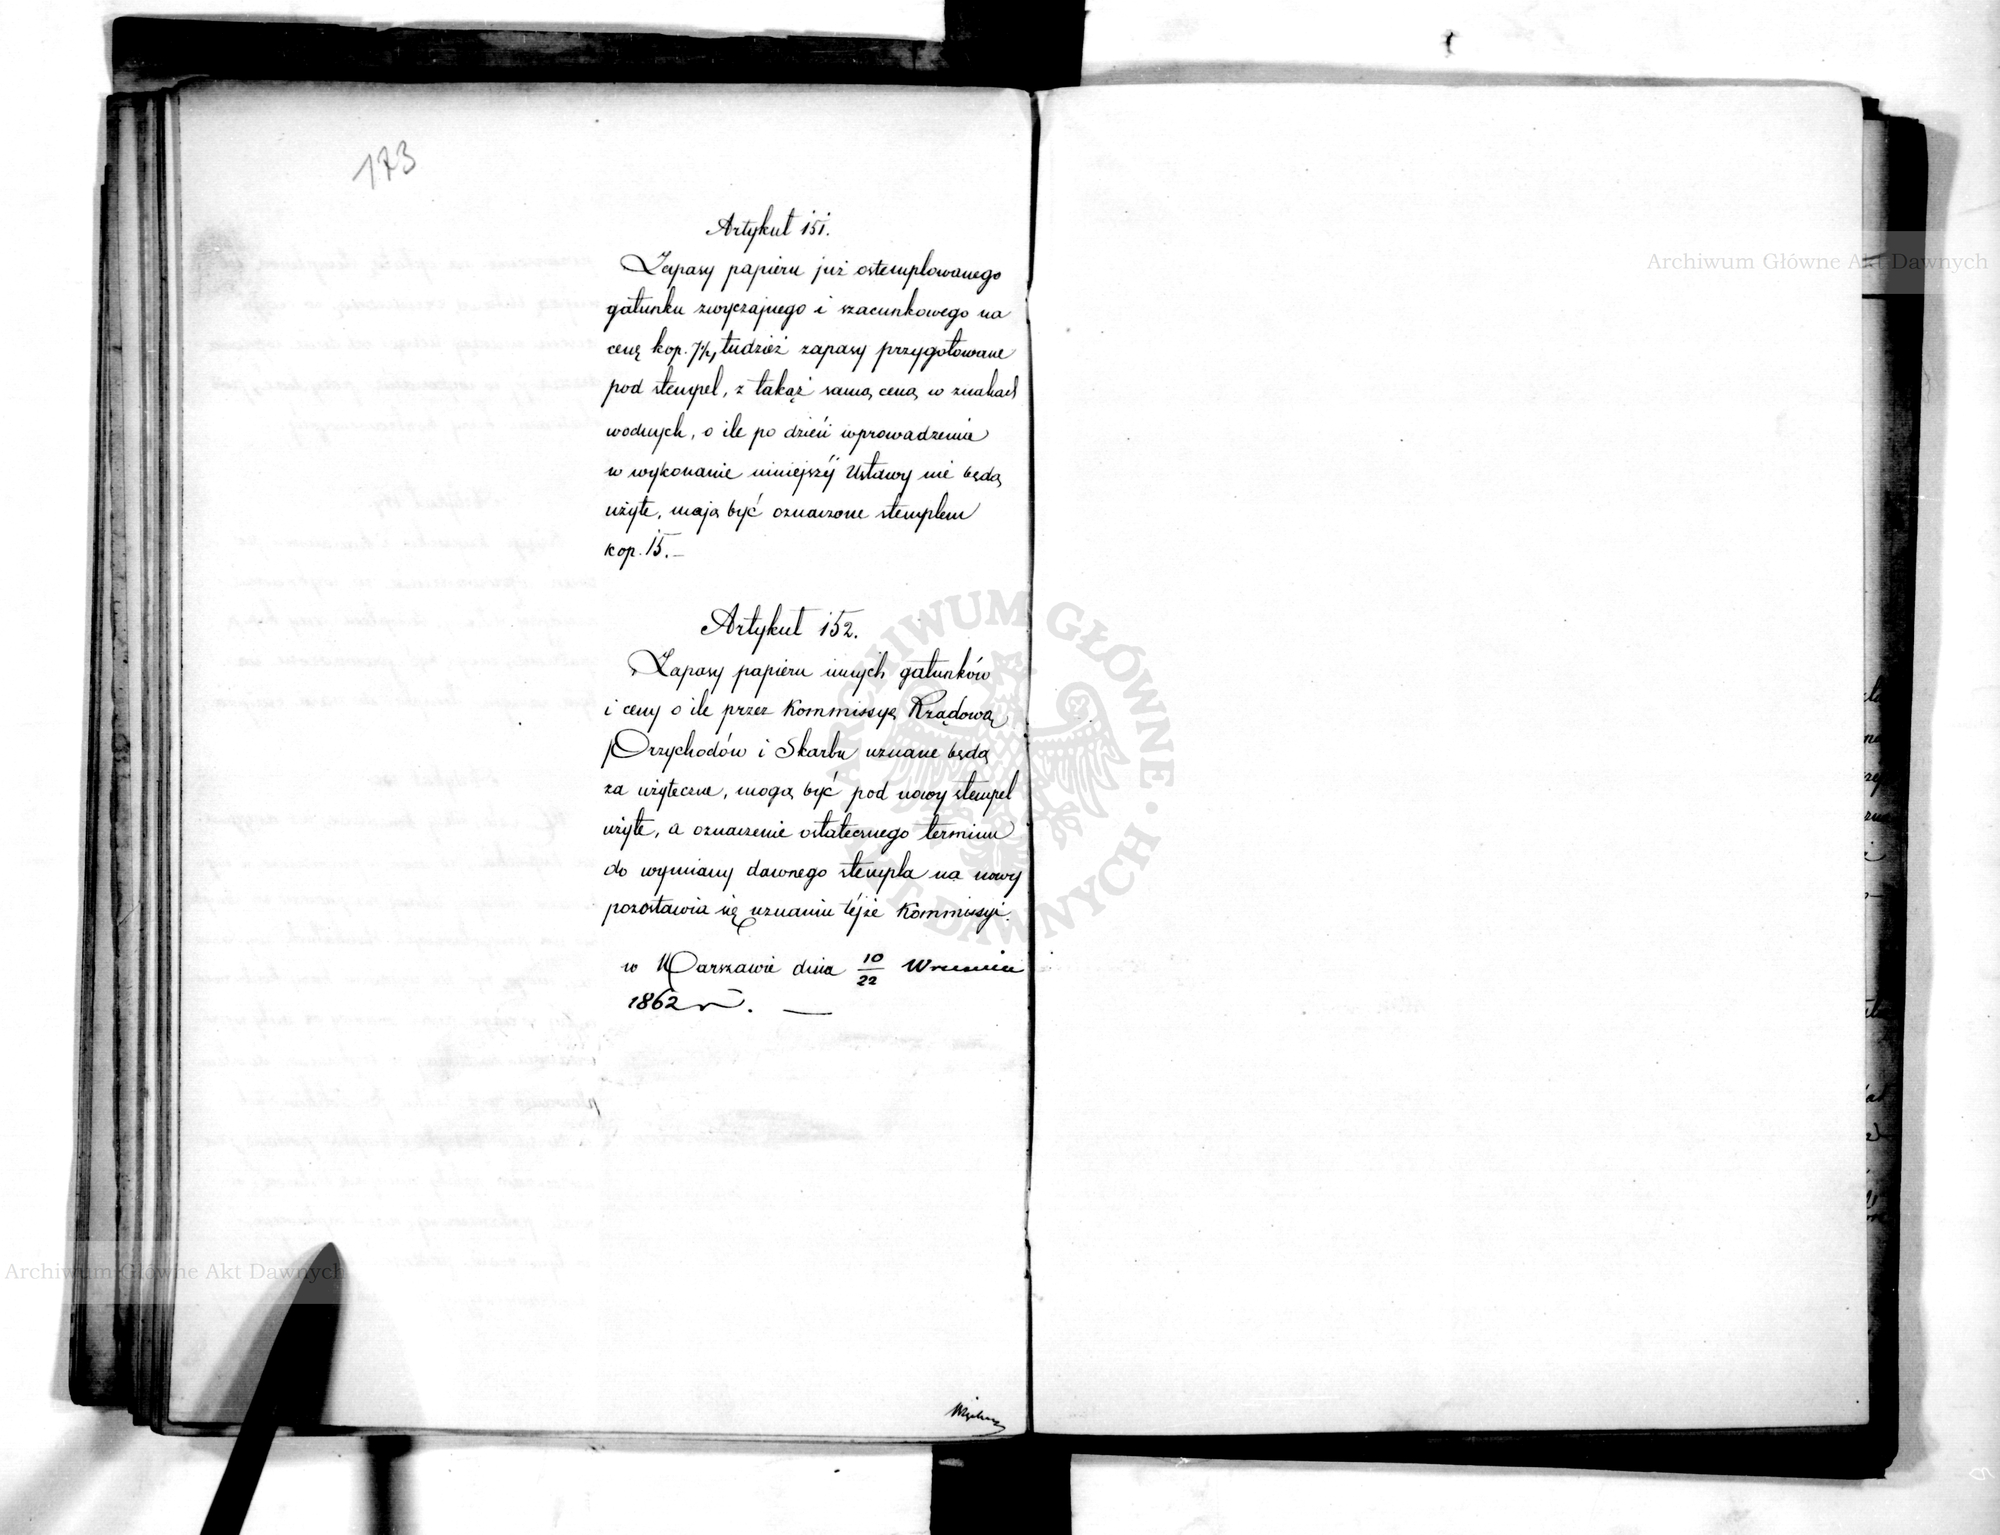 173
Artykuł 151.
Zapasy papieru już ostemplowanego
gatunku zwyczajnego i szacunkowego na
cenę kop. 7½, tudzież zapasy przygotowane
pod stempel, z takąż samą ceną w znakach
wodnych, o ile po dzień wprowadzenia
w wykonanie niniejszéj Ustawy nie będą
użyte, mają być oznaczone stemplem
kop. 15.—
Artykuł 152.
Zapasy papieru innych gatunków
i ceny o ile przez Kommissyę Rządową
Przychodów i Skarbu uznane będą
za użyteczne, mogą być pod nowy stempel
użyte, a oznaczenie ostatecznego terminu
do wymiany dawnego stempla na nowy
pozostawia się uznaniu téjże Kommissyi.
w Warszawie dnia 10/22 Września
1862 r. —
Archiwum Główne Akt Dawnych
Archiwum Główne Akt Dawnych
ARCHIWUM GŁÓWNE AKT DAWNYCH